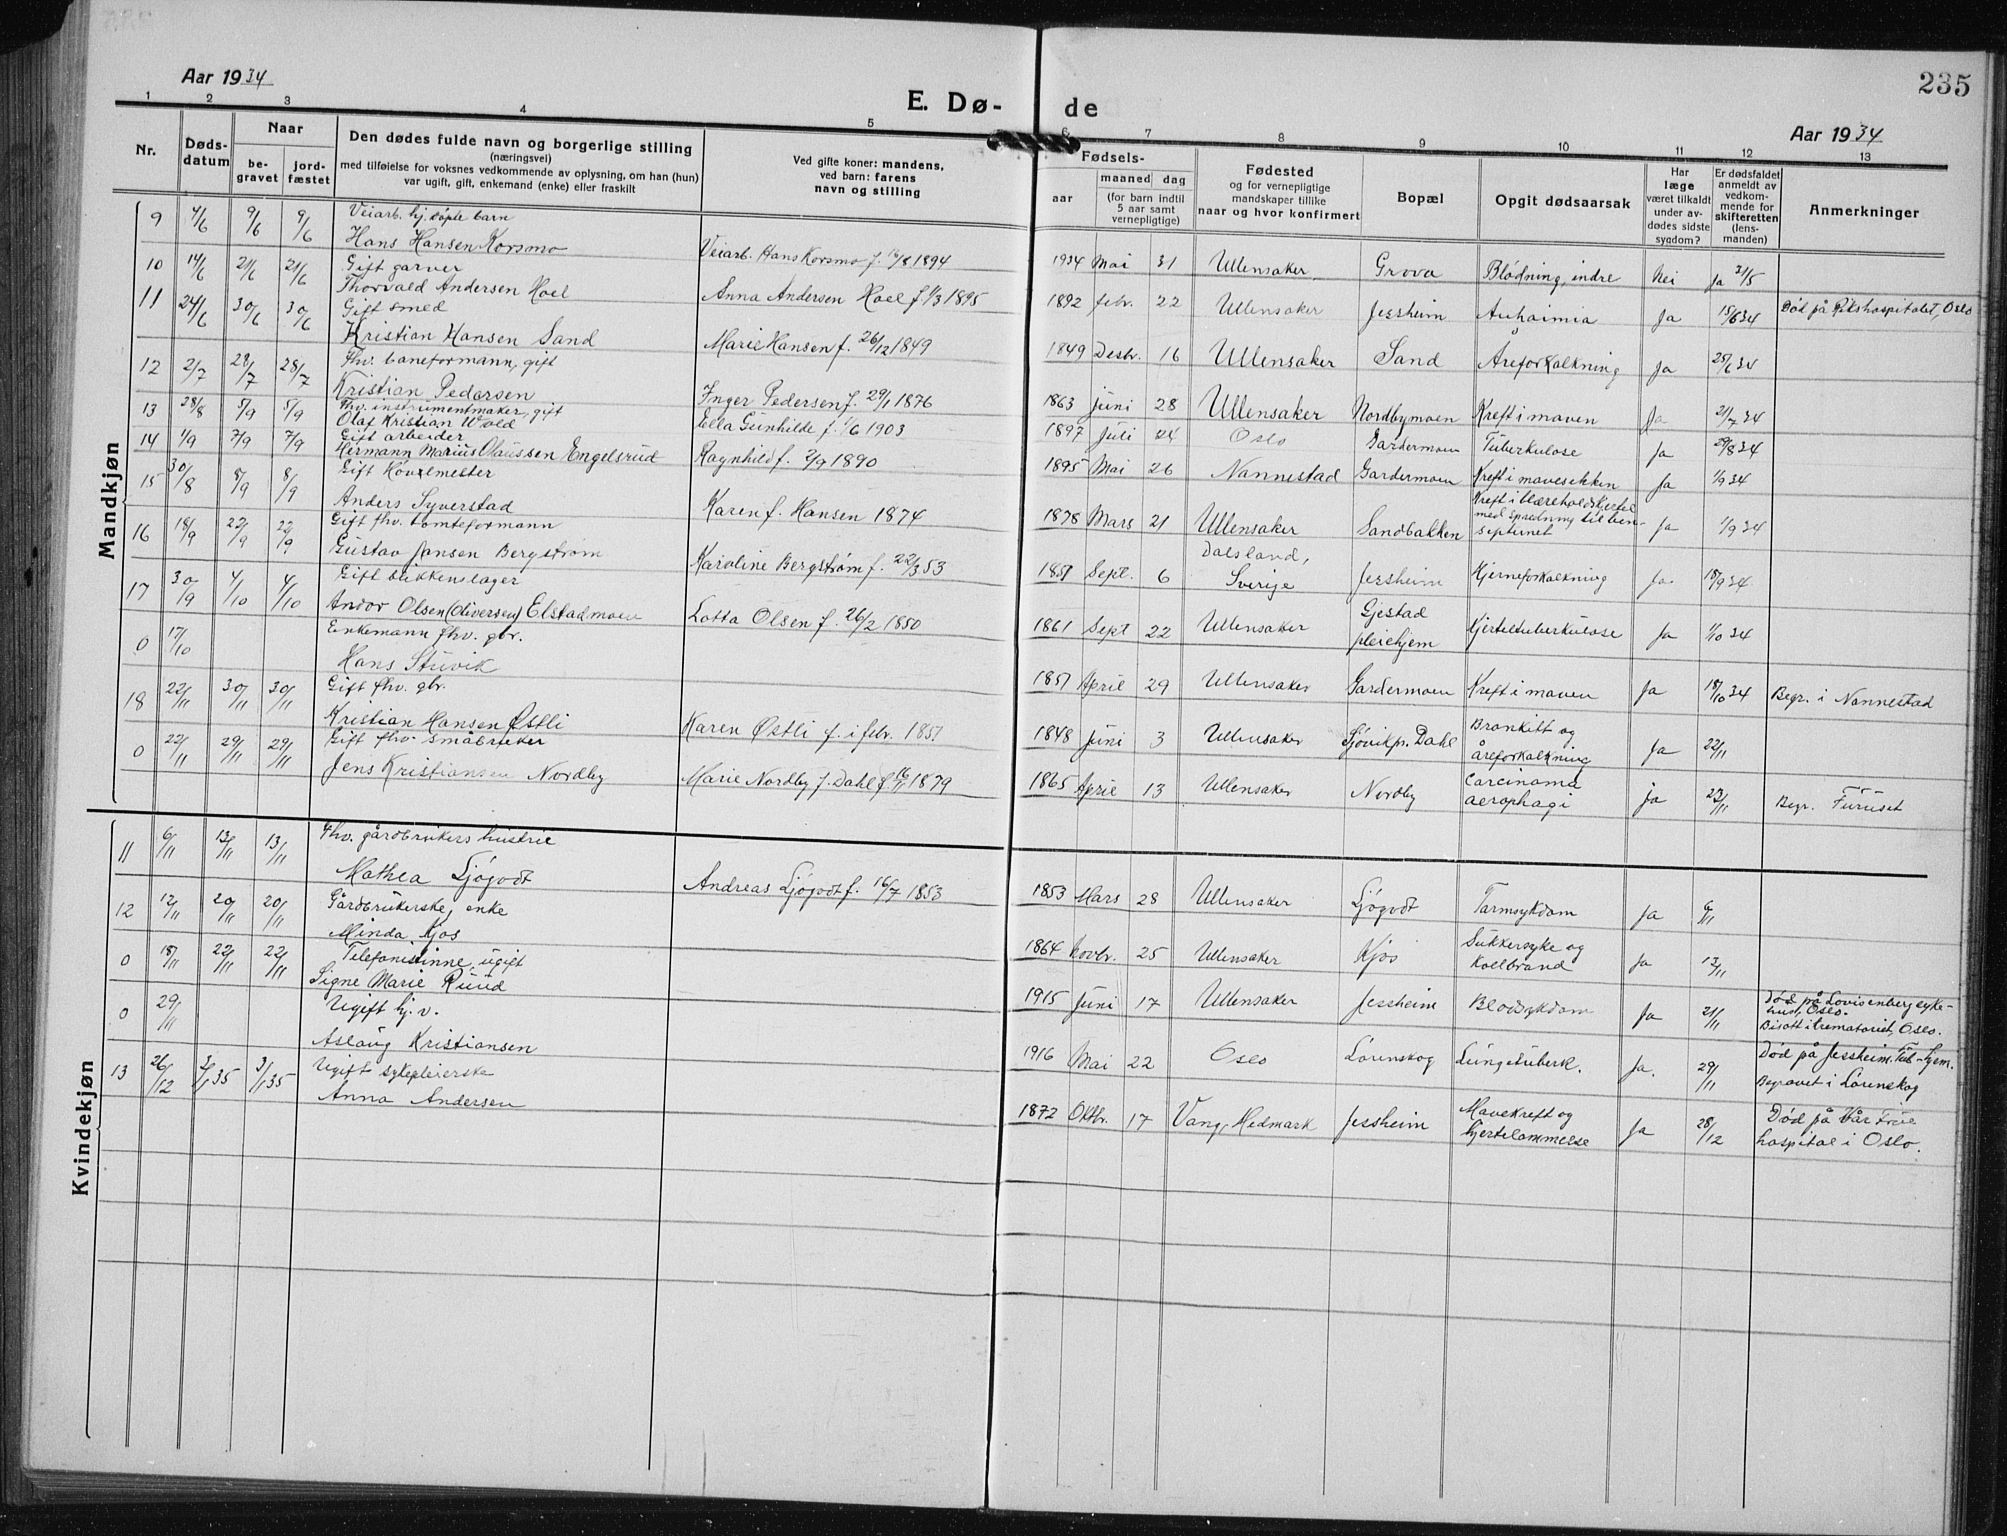 235
Aar 1934
E. Dø- de
Aar 1934
1 2 3 4 5 6 7 8 9 10 11 12 13
Nr.
Døds-
datum
Naar
be-
gravet
jord-
fæstet
Den dødes fulde navn og borgerlige stilling
(næringsvei)
med tilføielse for voksnes vedkommende av oplysning, om han (hun)
var ugift, gift, enkemand (enke) eller fraskilt
Ved gifte koner: mandens,
ved barn: farens
navn og stilling
Fødsels-
aar
maaned dag
(for barn indtil
5 aar samt
vernepligtige)
Fødested
og for vernepligtige
mandskaper tillike
naar og hvor konfirmert
Bopæl
Opgit dødsaarsak
Har
læge
været tilkaldt
under av-
dødes sidste
sygdom?
Er dødsfaldet
anmeldt av
vedkom-
mende for
skifteretten
(lens-
manden)
Anmerkninger
Mandkjøn
9 4/6 9/6 9/6 Veiarb. hj.døpte barn
Hans Hansen Korsmo Veiarb. Hans Korsmo f. 16/8 1894 1934 Mai 31 Ullensaker Grova Blødning, indre Nei Ja 31/5
10 14/6 21/6 21/6 Gift garver
Thorvald Andersen Hoel Anna Andersen Hoel f. 1/3 1895 1892 febr. 22 Ullensaker Jessheim Ja 15/6 34 Død på Rikshospitalet, Oslo
11 24/6 30/6 30/6 Gift smed
Kristian Hansen Sand Marie Hansen f. 26/12 1849 1849 Desbr. 16 Ullensaker Sand Åreforkalkning Ja 25/6 34
12 2/7 28/7 28/7 Fhv. baneformann, gift
Kristian Pedersen Inger Pedersen f. 29/1 1876 1863 juni 28 Ullensaker Nordbymoen Kreft i maven Ja 21/7 34
13 28/8 5/9 5/9 Fhv. instrumentmaker, gift
Olaf Kristian Wold Ella Gunhilde f. 1/6 1903 1897 Juli 24 Oslo Gardermoen Tuberkulose Ja 29/8 34
14 1/9 7/9 7/9 Gift arbeider
Hermann Marius Olaussen Engelsrud Ragnhild f. 2/9 1890 1895 Mai 26 Nannestad Gardermoen Kreft i mavesekken Ja 1/9 34
15 30/8 8/9 8/9 Gift Hovelmester
Anders Syverstad Karen f. Hansen 1874 1878 Mars 21 Ullensaker Sandbakken Kreft i blærehalskjertel
med spredning til ben-
Ja 1/9 34
16 18/9 22/9 22/9 Gift fhv. tomteformann
Gustav Jansen Bergstrøm Karoline Bergstrøm f. 22/3 53 1851 Sept. 6 Dalsland,
Sverige Jessheim Hjerneforkalkning Ja 18/9 34
17 30/9 4/10 4/10 Gift
Andor Olsen (Oliversen) Elstadmoen Lotta Olsen f. 26/2 1850 1861 Sept 22 Ullensaker Gjestad
pleiehjem Kjerteltuberkulose Ja 1/10 34
0 17/10 Enkemann fhv. gbr.
Hans Stuvik 1851 April 29 Ullensaker Gardermoen Kreft i maven Ja 18/10 34 Begr. i Nannestad
18 22/11 30/11 30/11 Gift fhv. gbr.
Kristian Hansen Østli Karen Østli f. i febr. 1851 1848 juni 3 Ullensaker Sjøvikpl. Dahl Bronkitt og
åreforkalkning Ja 22/11
0 22/11 29/11 29/11 Gift fhv. småbruker
Jens Kristiansen Nordby Marie Nordby f. Dahl f. 16/11 1879 1865 April 13 Ullensaker Nordby Carcinoma
aerophagi ja 23/11 Begr. Furuset
Kvindekjøn
11 6/11 13/11 13/11 Fhv. gårdbrukers hustrie
Mathea Ljøgodt Andreas Ljøgodt f. 16/7 1853 1853 Mars 28 Ullensaker Ljøgodt Tarmsykdom Ja 6/11
12 12/11 20/11 20/11 Gårdbrukerske, enke
Minda Kjos 1864 Novbr. 25 Ullensaker Kjos Sukkersyke og
Koldbrand Ja 13/11
0 18/11 22/11 22/11 Telefonistinne, ugift
Signe Marie Ruud 1915 Juni 17 Ullensaker Jessheim Blodsykdom Ja 21/11 Død på Lovisenberg syke-
hus, Oslo.
Bisatt i krematoriet, Oslo.
0 29/11 Ugift hj.v.
Aslaug Kristiansen 1916 Mai 22 Oslo Lørenskog Lungetuberk. Ja. 29/11 Død på Jessheim Tub-hjem.
Begravet i Lørenskog
13 26/12 3/1 35 3/1 35 Ugift sykepleierske
Anna Andersen 1872 Oktbr. 17 Vang, Hedmark Jessheim Mavekreft og
hjertelammelse Ja 28/12 Død på Vår Frue
hospital i Oslo.